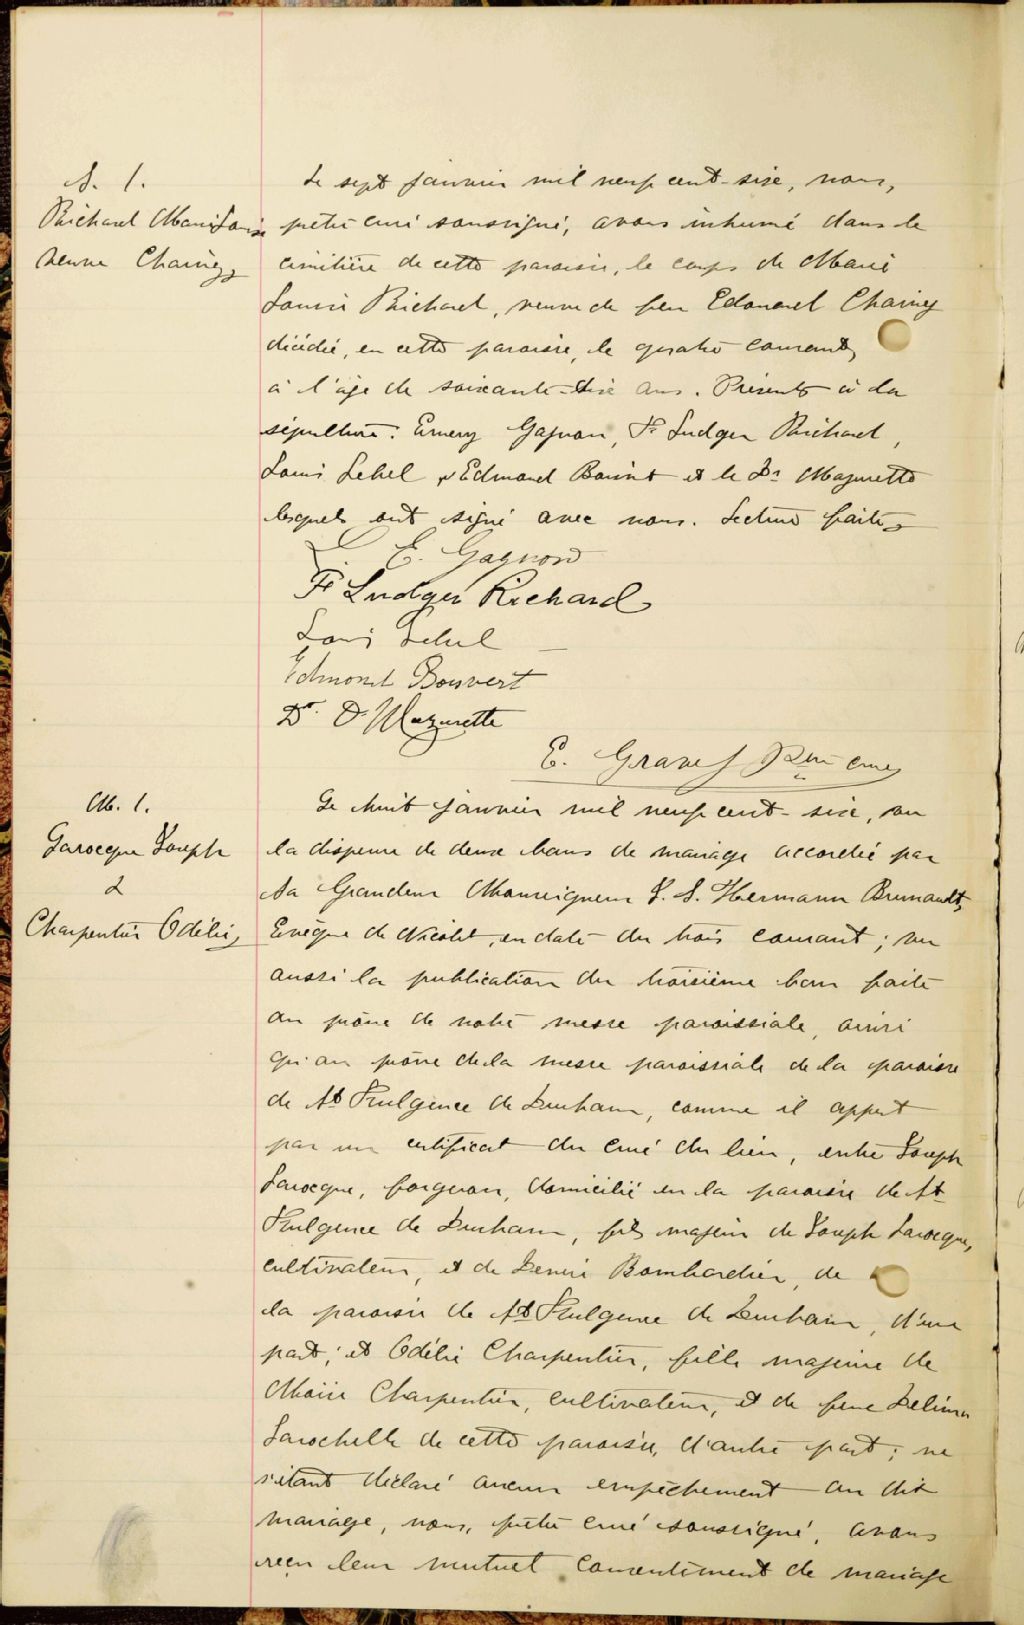 S. 1.
Richard Marie Louise
veuve Chainey
Le sept janvier mil neuf cent-six, nous,
prêtre curé soussigné, avons inhumé dans le
cimitière de cette paroisse, le corps de Marie
Louise Richard, veuve de feu Edouard Chainey
décédée, en cette paroisse, le quatre courant,
à l'âge de soixante-six ans. Présents à la
sépulture: Emery Gagnon, F. Ludger Richard,
Louis Lebel, Edmond Boisvert et le Dr Mazurette
lesquels ont signé avec nous. Lecture faite.
E. Gagnon
F. Ludger Richard
Louis Lebel
Edmond Boisvert
Dr. O Mazurette
E. Gravel Ptre curé
M. 1.
Larocque Joseph
&
Charpentier Odélie
Le huit janvier mil neuf cent-six, vu
la dispense de deux bans de mariage accordée par
Sa Grandeur Monseigneur J. S. Hermann Brunault,
Evêque de Nicolet, en date du trois courant; vu
aussi la publication du troisième ban faite
au prône de notre messe paroissiale, ainsi
qu'au prône de la messe paroissiale de la paroisse
de St Fulgence de Durham, comme il appert
par un certificat du curé du lieu, entre Joseph
Larocque, forgeron, domicilié en la paroisse de St
Fulgence de Durham, fils majeur de Joseph Larocque,
cultivateur, et de Bombardier, de
la paroisse de St Fulgence de Durham, d'une
part; et Odélie Charpentier, fille majeure de
Moïse Charpentier, cultivateur, et de feue Delima
Larochelle de cette paroisse, d'autre part; ne
s'étant déclaré aucun empêchement au dit
mariage, nous, prêtre curé soussigné, avons
reçu leur mutuel consentement de mariage